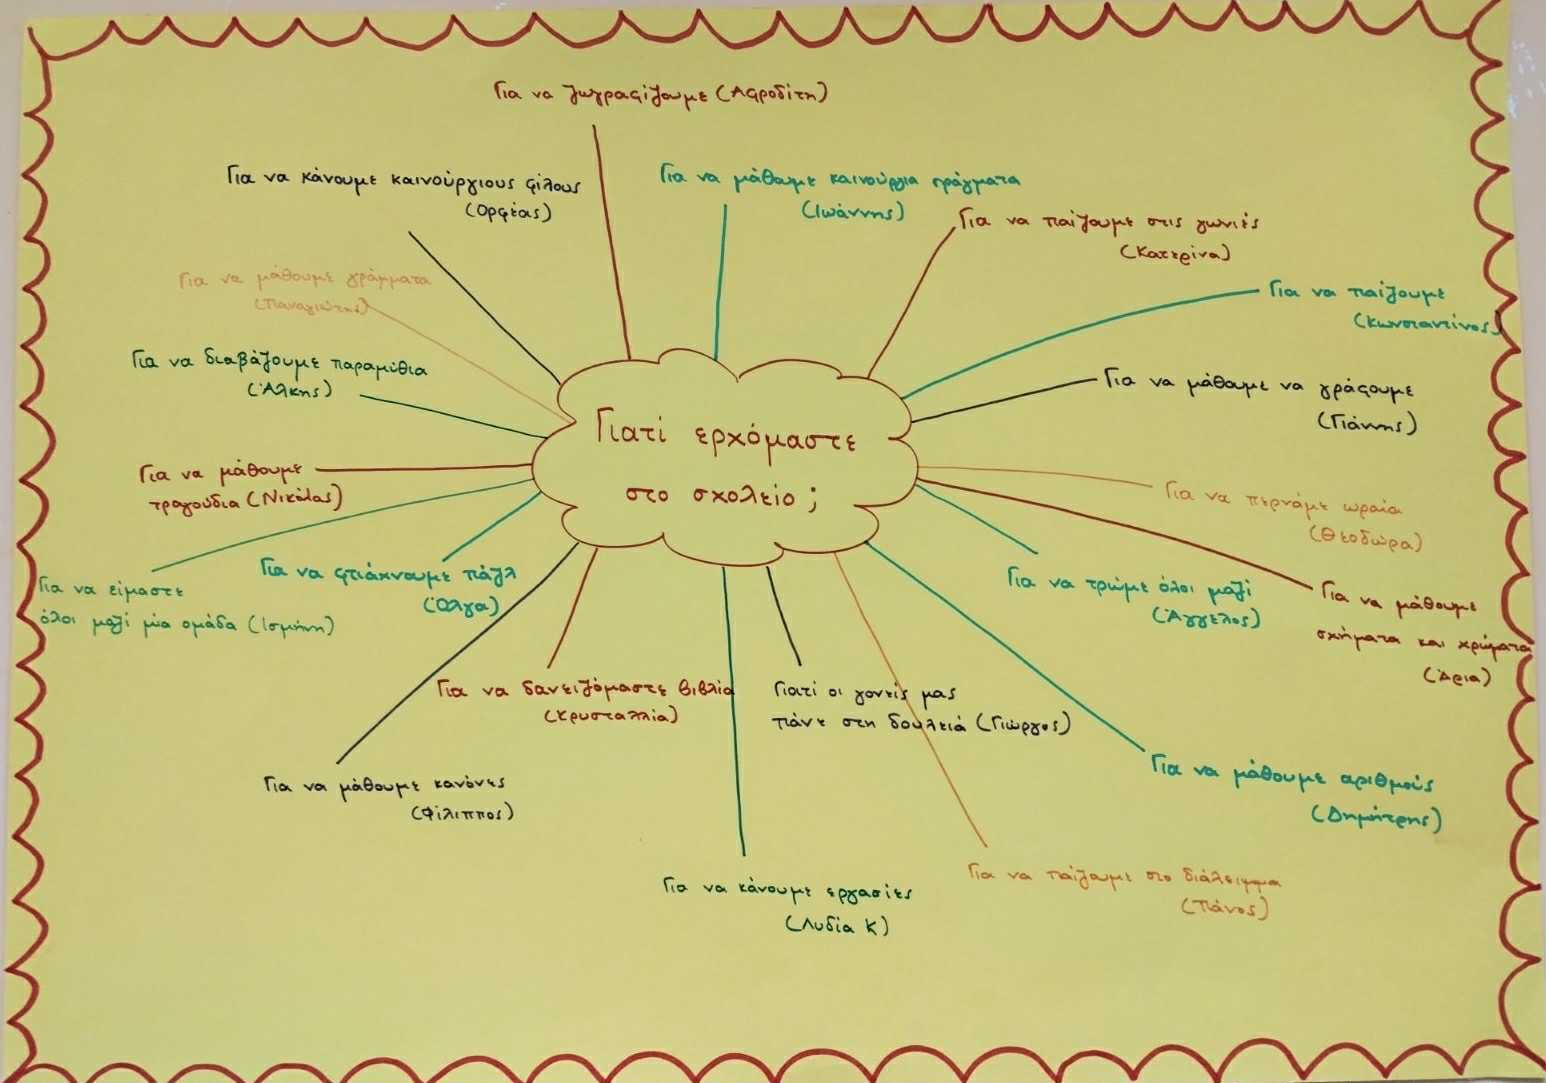 Για να ζωγραφίζουμε (Αφροδίτη)
Για να κάνουμε καινούργιους φίλους
(Ορφέας)
Για να μάθουμε καινούργια πράγματα
(Ιωάννης)
Για να παίζουμε στις γωνιές
(Κατερίνα)
Για να μάθουμε γράμματα
(Παναγιώτης)
Για να παίζουμε
(Κωνσταντίνος)
Για να διαβάζουμε παραμύθια
(Άλκης)
Για να μάθουμε να γράφουμε
(Γιάννης)
Γιατί ερχόμαστε
στο σχολείο;
Για να μάθουμε
τραγούδια (Νικόλας)
Για να περνάμε ωραία
(Θεοδώρα)
Για να είμαστε
όλοι μαζί μία ομάδα (Ισμήνη)
Για να φτιάχνουμε πάζλ
(Όλγα)
Για να τρώμε όλοι μαζί
(Άγγελος)
Για να μάθουμε
σχήματα και χρώματα
(Άρια)
Για να δανειζόμαστε βιβλία
(Κρυσταλλία)
Γιατί οι γονείς μας
πάνε στη δουλειά (Γιώργος)
Για να μάθουμε κανόνες
(Φίλιππος)
Για να μάθουμε αριθμούς
(Δημήτρης)
Για να κάνουμε εργασίες
(Λυδία Κ)
Για να παίζουμε στο διάλειμμα
(Πάνος)